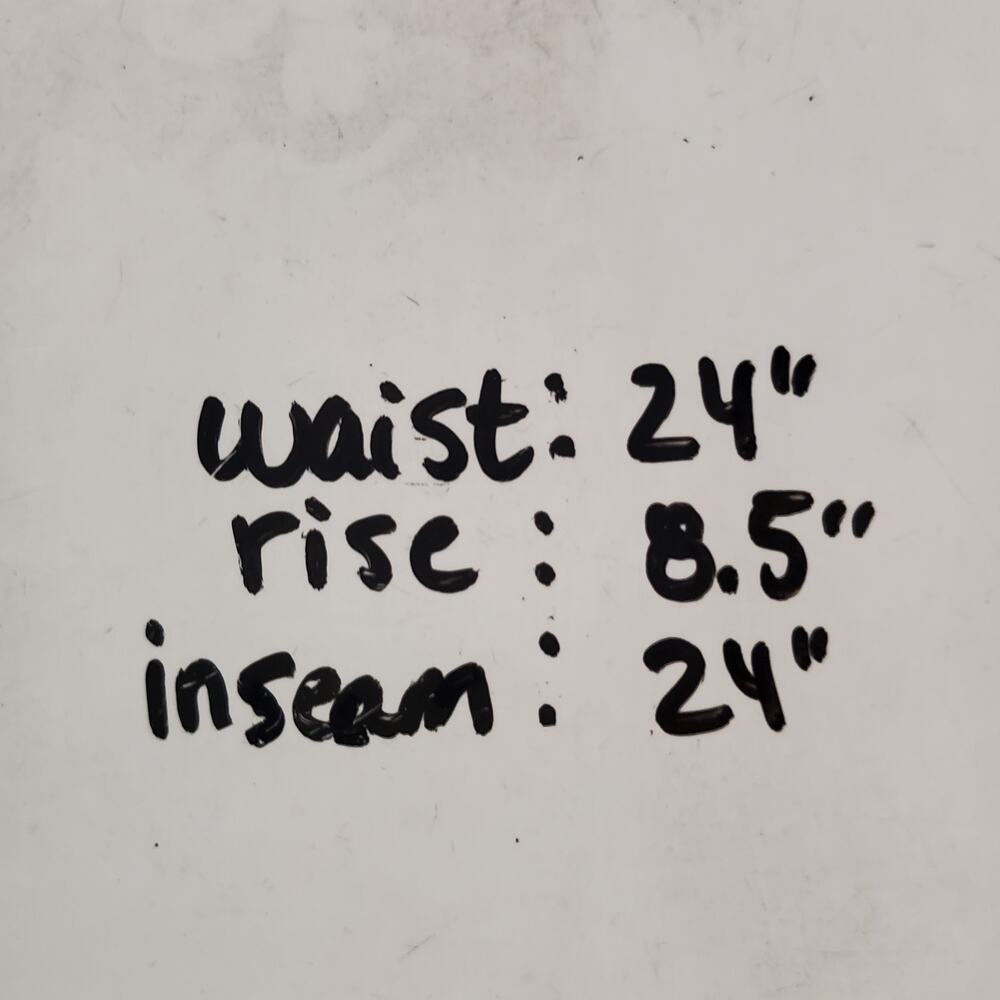 waist: 24"
rise : 8.5"
inseam : 24"